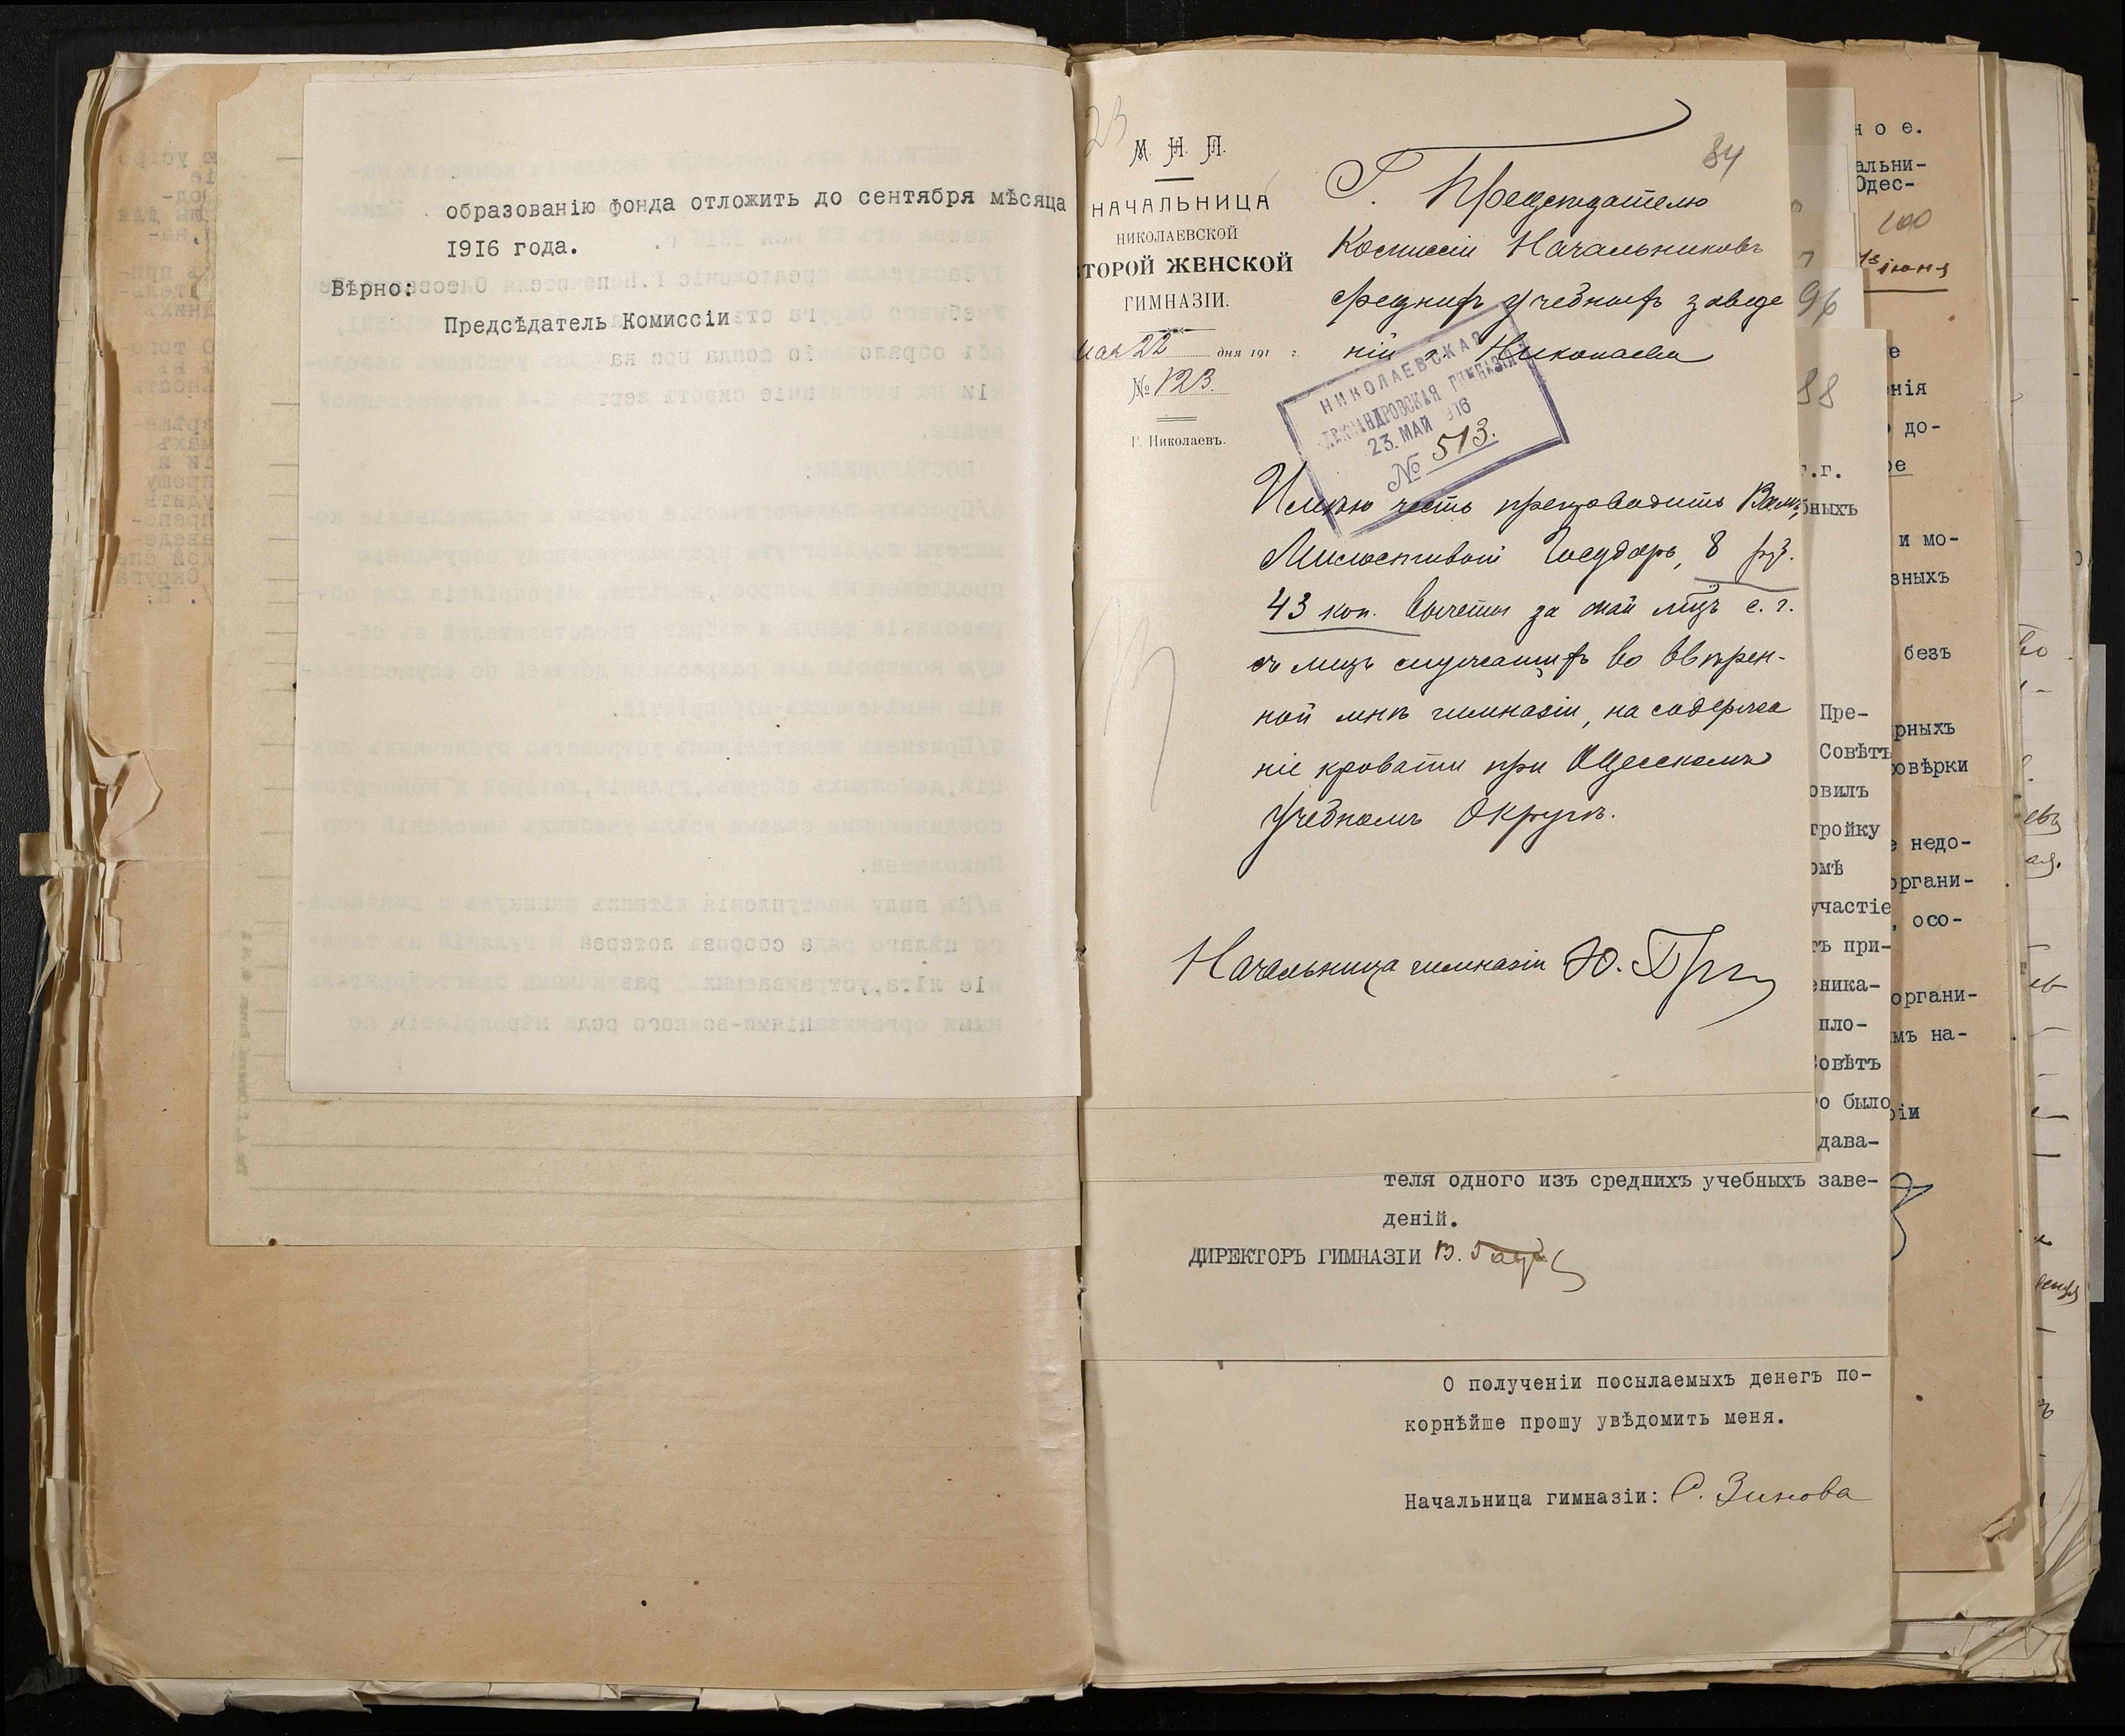 образованію фонда отложить до сентября мѣсяца
1916 года.
Вѣрно:
Предсѣдатель Комиссіи
23
М. Н. П.
НАЧАЛЬНИЦА
НИКОЛАЕВСКОЙ
ВТОРОЙ ЖЕНСКОЙ
ГИМНАЗІИ.
Мая 22 дня 191 г.
№ 123.
Г. Николаевъ.
84
Г. Предсѣдателю
Комиссіи Начальниковъ
среднихъ учебныхъ заведе
ній г. Николаева
НИКОЛАЕВСКАЯ
АЛЕКСАНДРОВСКАЯ ГИМНАЗІЯ
23. МАЙ 916
№ 513.
Имѣю честь препроводить Вамъ,
Милостивый Государь, 8 руб.
43 коп. вычеты за май мѣсяцъ с. г.
съ лицъ служащихъ во ввѣрен-
ной мнѣ гимназіи, на содержа
ніе кровати при Одесскомъ
Учебномъ Округѣ.
Начальница гимназіи Ю.
теля одного изъ среднихъ учебныхъ заве-
деній.
ДИРЕКТОРЪ ГИМНАЗІИ В.
О полученіи посылаемыхъ денегъ по-
корнѣйше прошу увѣдомить меня.
Начальница гимназіи: С. Зинова
96
88
г.г.
бныхъ
Пре-
Совѣтъ
овилъ
тройку
омѣ
участіе
тъ при-
еника-
пло-
Совѣтъ
о было
дава-
ное.
альни-
Одес-
100
іюня
е
нія
до-
ре
и мо-
зныхъ
безъ
рныхъ
овѣрки
е недо-
органи-
, осо-
органи-
мъ на-
іи